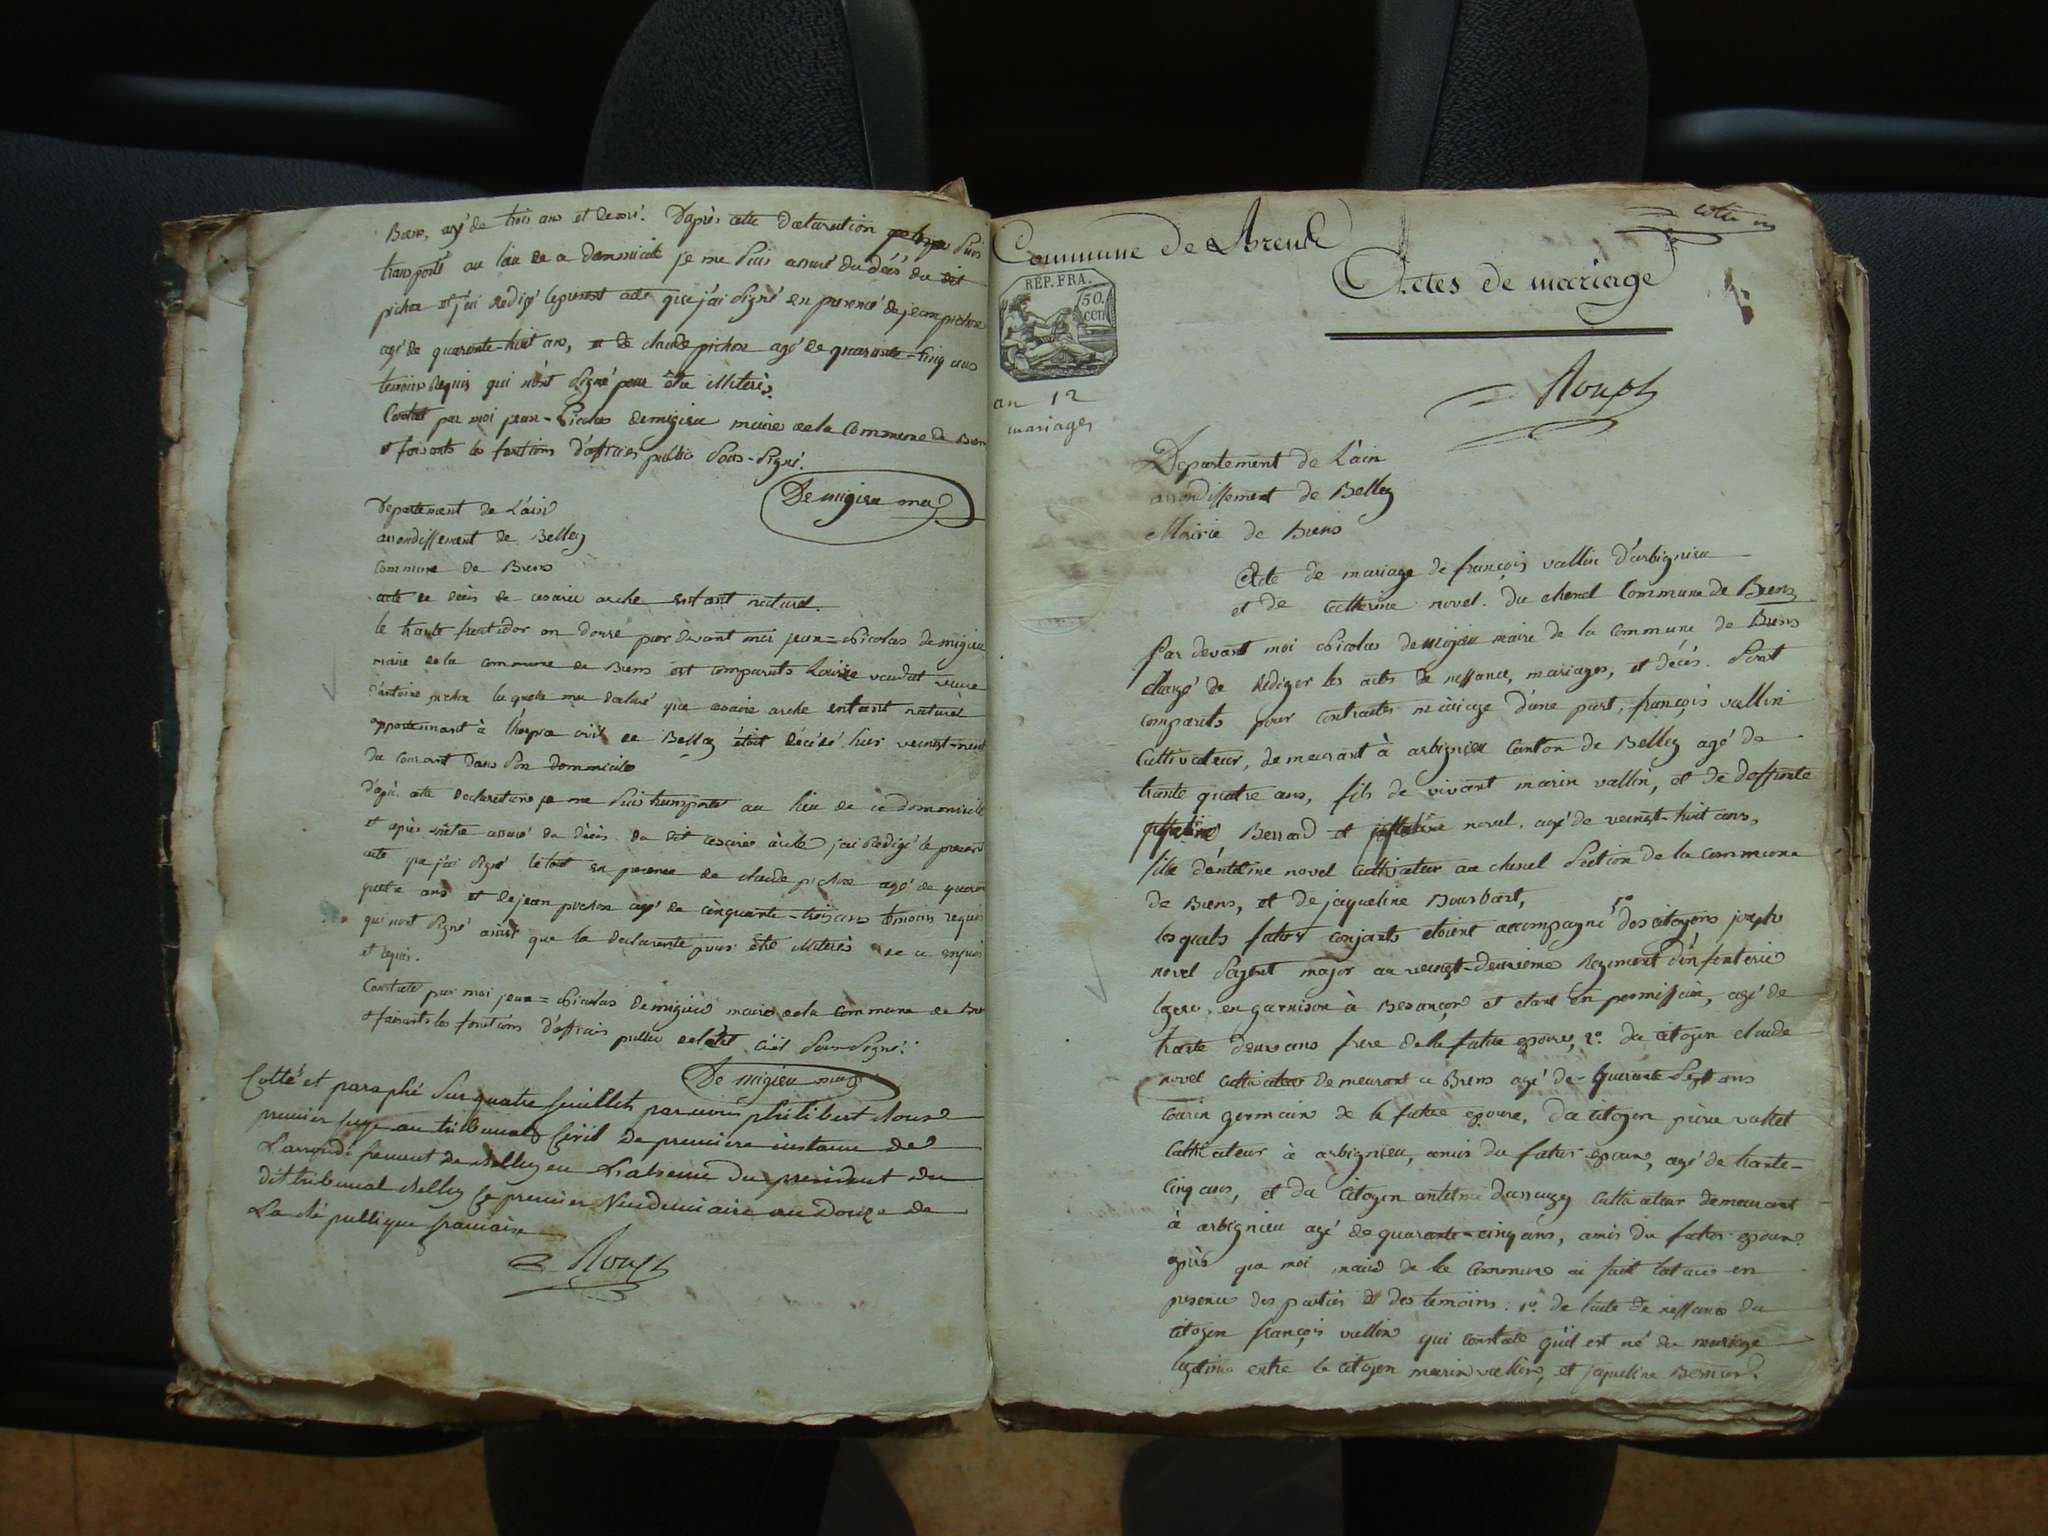 Bren, agé de trois ans et demi. D'après cette declaration je me suis
transporté au lieu de ce dommicile je me suis assuré du décés du dit
pichon et j'ai redigé le present acte que j'ai signé en presence de jean pichon
agé de quarente-huit ans, et de claude pichon agé de quarante-cinq ans
temoins requis qui n'ont signé pour être illiterés.
Constaté par moi jean-nicolas demigieu maire de la commune de Bren
et faisants les fonctions d'officier public sous-signé.
De migieu mag
Departement de L'ain
arrondissement de Belley
Commune de Brens
acte de décès de cesaire arche enfant naturel.
le trante fructidor an douze par devant moi jean=nicolas demigieu
maire de la commune de Brens est comparuts Louise vaudat veuve
d'antoine pichon la quelle m'a declaré que cesaire arche enfant naturel
appartenant à l'hospice civil de Belley étoit décédé hier veingt-neuf
du courant dans son dommicile
d'apès cette declaration je me suis transporté au lieu de ce dommicile
et après m'être assuré du décès du dit cesaire arche j'ai redigé le present
acte que j'ai signé le tout en presence de claude pichon agé de quarante
quatre ans et de jean pichon agé de cinquante-trois ans temoins requis
qui n'ont signé ainsi que la declarante pour être illiterés de ce enquis
et requis.
Constaté par moi jean=nicolas demigieu maire de la commune de Bre
et faisants les fonctions d'officier public de l'état civil sous-signé.
De migieu mag
Cotté et paraphé sur quatre feuillets par nous philibert Roux
premier juge au tribunal Civil de premiere instance de
L'arrondissement de Belley en L'absence du president du
dit tribunal Belley le premier Vendemiaire an Douze de
La République francaise
Roux
Commune de Brens
cotte
Actes de mariage
REP. FRA.
50. cen.
an 12
mariages
Roux
Departement de L'ain
arrondissement de Belley
Mairie de Brens
Acte de mariage de françois vallin d'arbignieu
et de catherine novel. du chenel Commune de Brens
par devant moi nicolas demigieu maire de la commune de Brens
chargé de rediger les actes de nessance, mariages, et décés. Sont
comparuts pour contracter mariage d'une part, françois vallin
cultivateur, demeurant à arbignieu canton de Belley agé de
trante quatre ans, fils de vivant marin vallin, et de deffunte
Bernard et novel, agé de veingt-huit ans,
fille d'entelme novel cultivateur au chenel section de la commune
de Brens, et de jaqueline Bourbart,
les quels futurs conjoints etoient accompagné 1º des citoyens joseph
novel sergent major au veingt-deuxième regiment d'infanterie
legere, en garnison à Besançon et etant en permission, agé de
trante deux ans frere de la future epouse, 2º. du citoyen claude
novel cultivateur demeurant a Brens agé de quarante sept ans
cousin germain de la future epouse, du citoyen pierre vallet
cultivateur à arbignieu, amis du futur epoux, agé de trante-
cinq ans, et du citoyen antelme dassauzy cultivateur demeurant
à arbignieu agé de quarante-cinq ans, amis du futur epoux.
après que moi maire de la commune ai fait lecture en
presence des parties et des temoins: 1º. de l'acte de nessance du
citoyen françois vallin qui constate qu'il est né du mariage
legitime entre le citoyen marin vallin, et jaqueline Bernard.